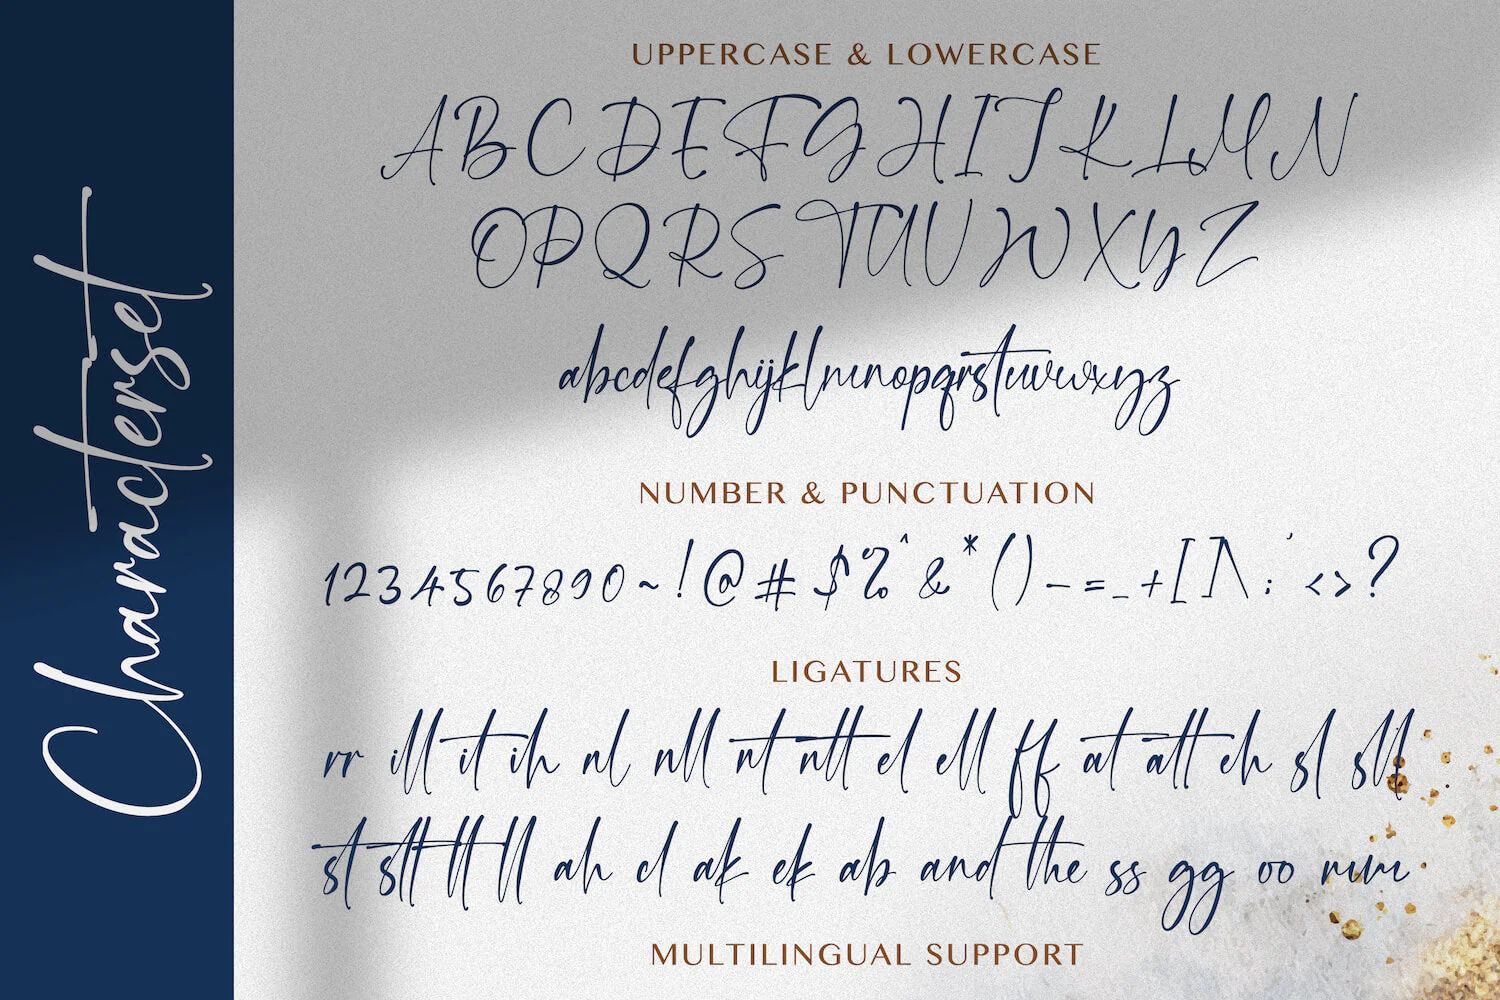 Characterset
UPPERCASE & LOWERCASE
ABCDEFGHIJKLMN
OPQRSTUVWXYZ
abcdefghijklmnopqrstuvwxyz
NUMBER & PUNCTUATION
1234567890~!@#$%^&*()-=_+[]\;'<>?
LIGATURES
rr ill it ih nl nll nt ntt el ell ff at att eh sl sll
st stt tt ll ah cl ak ek ab and the ss gg oo mm
MULTILINGUAL SUPPORT